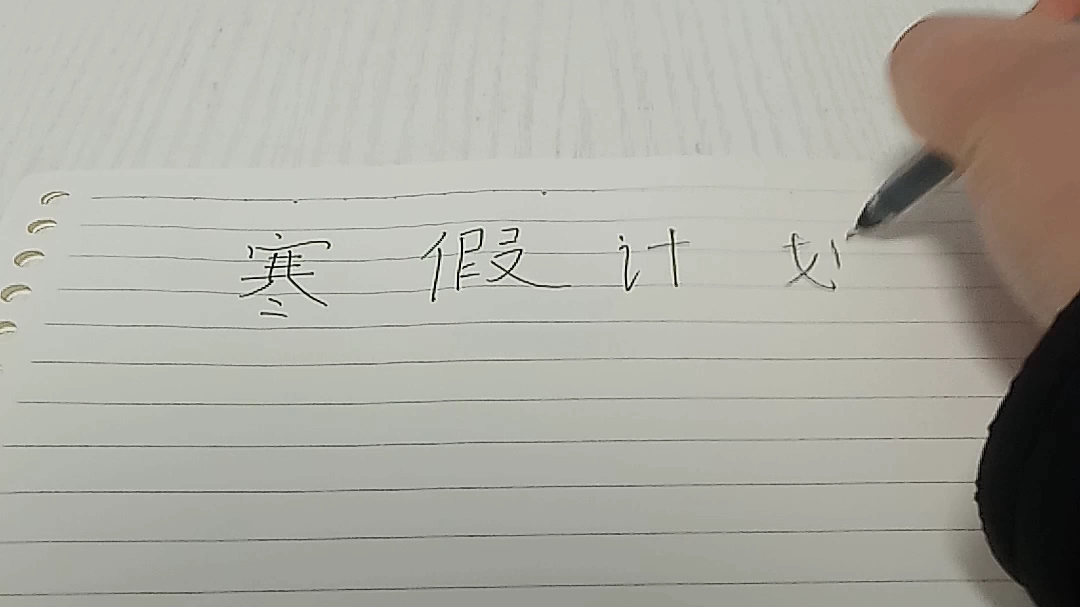 寒假计划